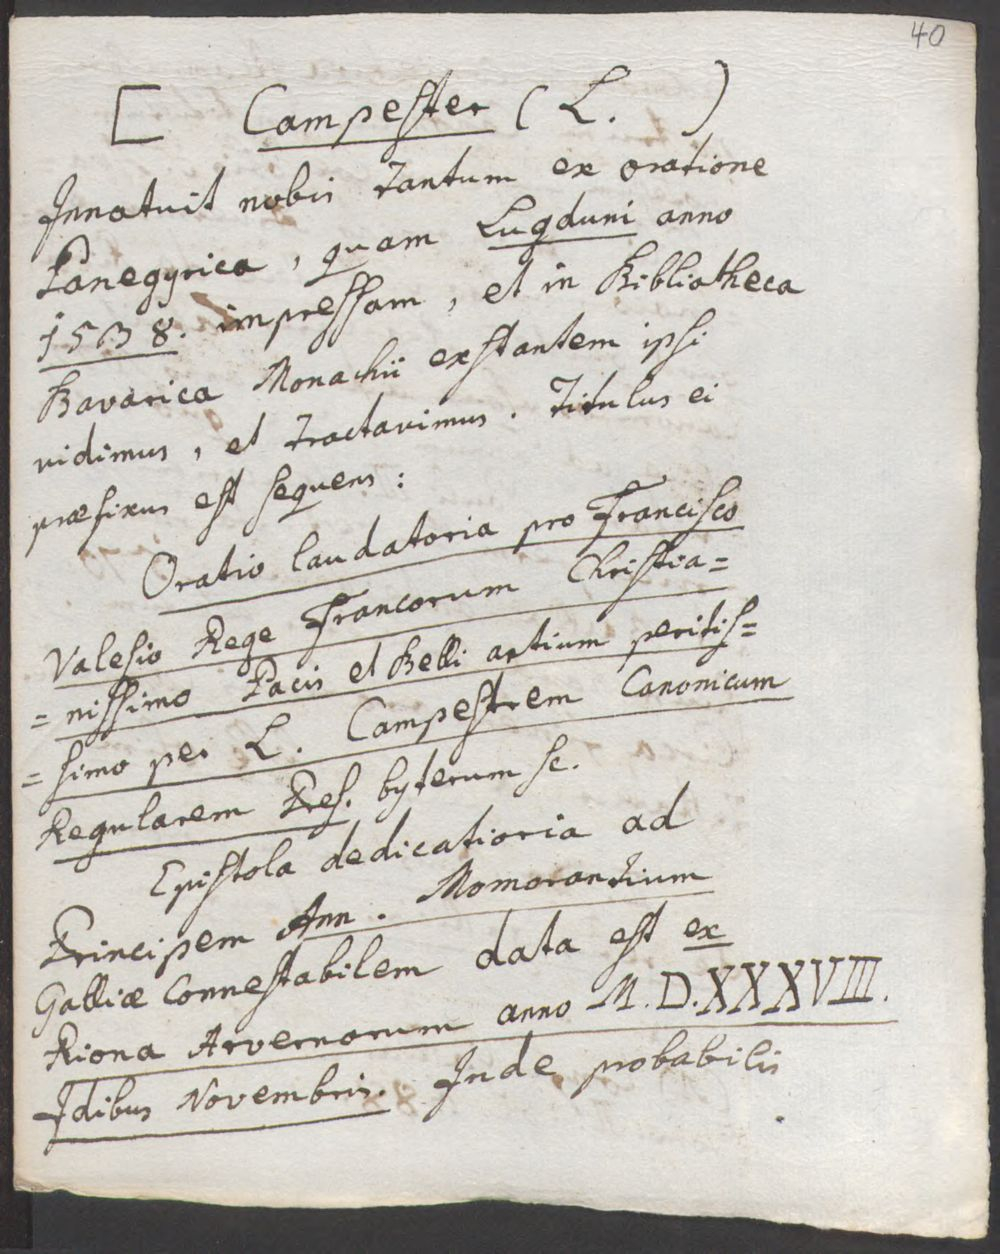 40
[ Campester ( L. )
Innotuit nobis tantum ex oratione
Panegyrica, quam Lugduni anno
1538. impressam, et in Bibliotheca
Bavarica Monachii exstantem ipsi
vidimus, et tractavimus. Titulus ei
præfixus est sequens:
Oratio laudatoria pro Francisco
Valesio Rege Francorum Christia=
=nissimo Pacis et Belli artium peritis=
=simo per L. Campestrem Canonicum
Regularem Pres. byterum sc.
Epistola dedicatioria ad
Principem Ann. Momorantium
Galliæ Connestabilem data est ex
Riona Arvernorum anno M.D.XXXVIII.
Idibus Novembris. Inde probabilis